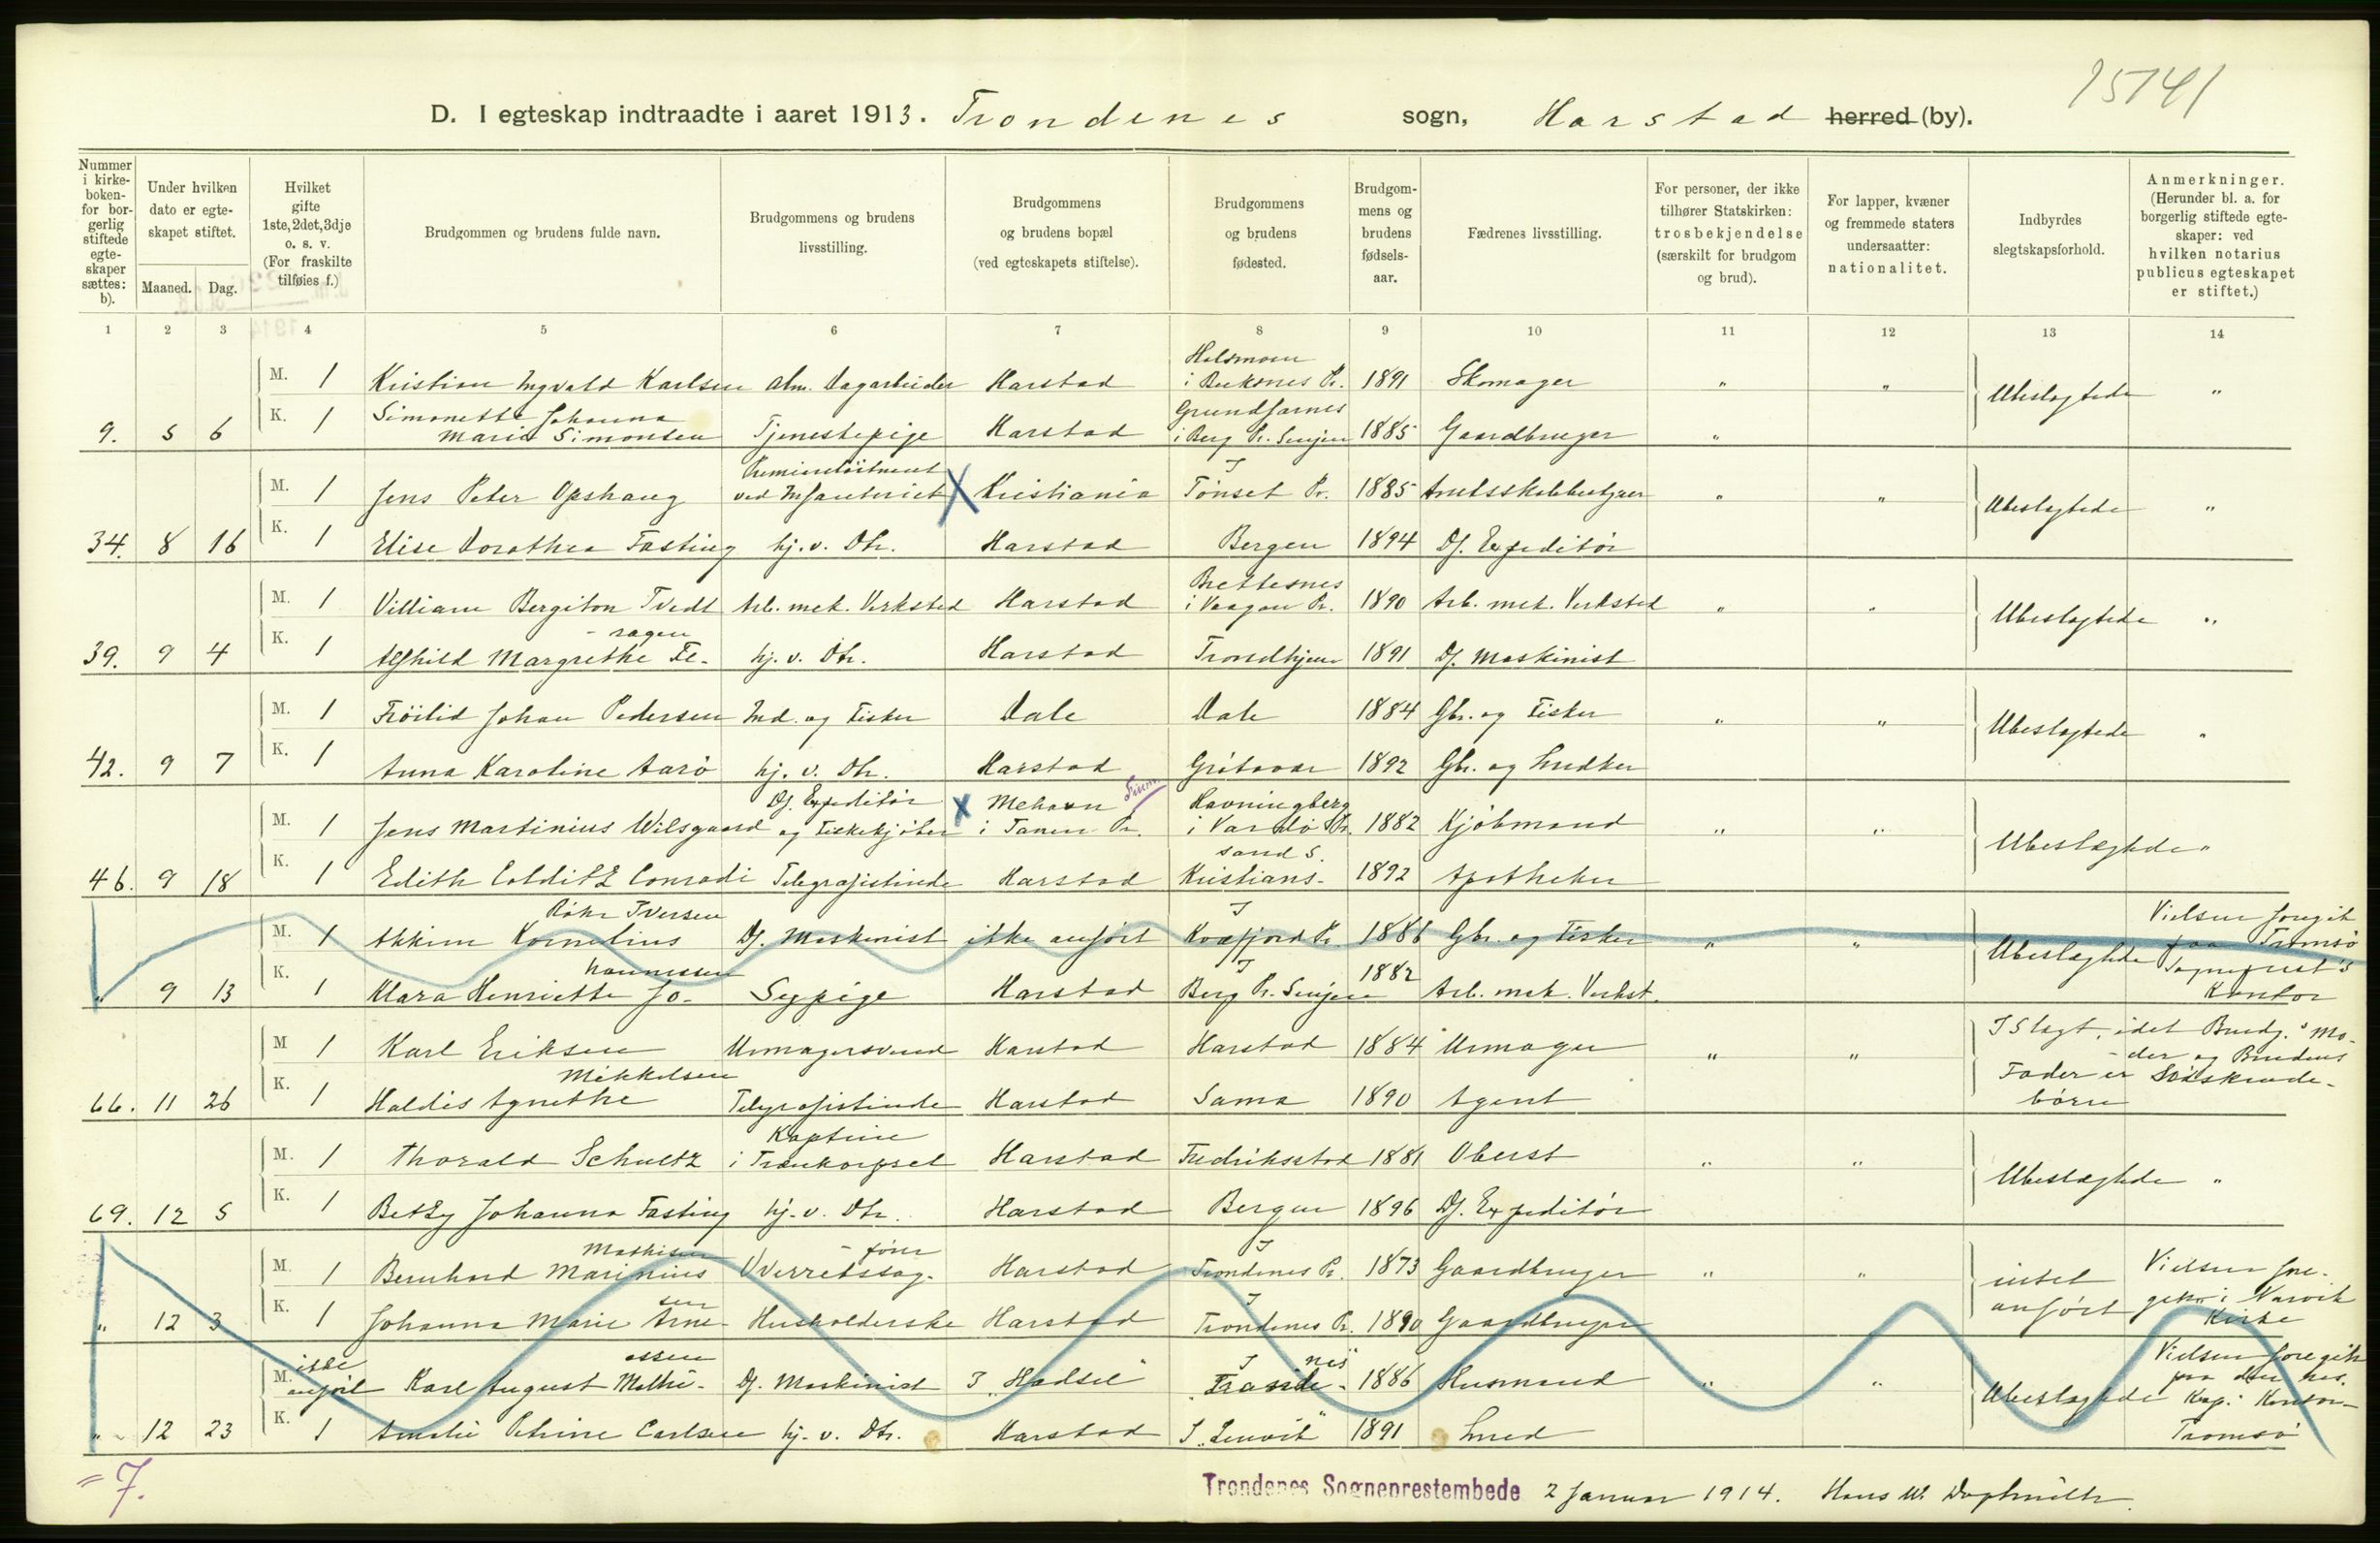 15141
D. I egteskap indtraadte i aaret 1913. Trondenes sogn, Harstad herred (by).
Nummer i kirke-boken- for bor-gerlig stiftede egte-skaper sættes: b).
Under hvilken dato er egte-skapet stiftet.
Maaned. Dag.
Hvilket gifte 1ste, 2det, 3dje o. s. v. (For fraskilte tilføies f.)
Brudgommen og brudens fulde navn.
Brudgommens og brudens livsstilling.
Brudgommens og brudens bopæl (ved egteskapets stiftelse).
Brudgommens og brudens fødested.
Brudgom-mens og brudens fødsels-aar.
Fædrenes livsstilling.
For personer, der ikke tilhører Statskirken: trosbekjendelse (særskilt for brudgom og brud).
For lapper, kvæner og fremmede staters undersaatter: nationalitet.
Indbyrdes slegtskapsforhold.
Anmerkninger. (Herunder bl. a. for borgerlig stiftede egte-skaper: ved hvilken notarius publicus egteskapet er stiftet.)
1 2 3 4 5 6 7 8 9 10 11 12 13 14
M. 1 Kristian Ingvald Karlsen alm. Dagarbeider Harstad i Buksnes Pr. 1891 Skomager " " Ubeslagtede "
9. 5 6 K. 1 Simonette Johanna Marie Simonsen Tjenestepige Harstad Grundfarnes i Berg Pr. Senjen 1885 Gaardbruger "
M. 1 Jens Peter Opshaug Premierløitnant ved Infanteriet X Kristiania I Tönset Pr. 1885 " " Ubeslagtede "
34. 8 16 K. 1 Elise Dorothea Fasting hj. v. Dtr. Harstad Bergen 1894 Df. Expeditör
M. 1 Villiam Bergiton Tvedt Arb. mek. Verksted Harstad Brettesnes i Vaagan Pr. 1890 Arb. mek. Verksted " " Ubeslagtede "
39. 9 4 K. 1 Alfhild Margrethe Fe-ragen hj. v. Dtr. Harstad Trondhjem 1891 Df. Maskinist
M. 1 Fröilid Johan Pedersen Ind. og Fisker Dale Dale 1884 Gbr. og Fisker " " Ubeslagtede "
42. 9 7 K. 1 Anna Karoline Aarö hj. v. Dtr. Harstad Grötavær 1892 Gbr. og Snedker
M. 1 Jens Martinius Wilsgaard Df. Expeditör og Fiskekjöber X Mehavn i Tanen Pr. Finm. Havningberg i Vardö Pr. 1882 Kjöbmand " " Ubeslægtede "
46. 9 18 K. 1 Edith Colditz Conradi Telegrafistinde Harstad Kristians-sand S. 1892 Apotheker
M. 1 Akkim Kornelius Röhr Iversen Df. Maskinist ikke anfört I Kvæfjord Pr. 1886 Gbr. og Fisker " " Ubeslagtede Vielsen foregik paa Tromsö Sogneprest's Kontor
" 9 13 K. 1 Klara Henriette Jo-hannessen Sypige Harstad I Berg Pr. Senjen 1882 Arb. mek. Verkst.
M 1 Karl Eriksen Urmagersvend Harstad Harstad 1884 Urmager " " I Slagt, idet Brudg.'s Mo-der og Brudens Fader er Söskende-börn
66. 11 26 K. 1 Haldis Agnethe Mikkelsen Telegrafistinde Harstad Sama 1890 Agent
M. 1 Thorald Schultz Kaptein i Trænkorpset Harstad Fredriksstad 1881 Oberst " " Ubeslægtede "
69. 12 5 K. 1 Betzy Johanna Fasting hj. v. Dtr. Harstad Bergen 1896 Df. Expeditör
M. 1 Bernhard Marinius Mathisen Overretssag-förer Harstad I Trondenes Pr. 1873 Gaardbruger " " intet anfört Vielsen fore-gik i Narvik Kirke
" 12 3 K. 1 Johanna Marie Arne-sen Husholderske Harstad I Trondenes Pr. 1890 Gaardbruger
M. ikke anfört Karl August Mathi-assen Df. Maskinist I "Hadsel" I "Tranö-nes" 1886 Husmand " " Ubeslagtede Vielsen foregik paa den res. Kap. Kontor Tromsö
" 12 23 K. 1 Amalie Petrine Carlsen hj. v. Dtr. Harstad I "Lenvik" 1891 Smed
= 7.
Trondenes Sogneprestembede 2 Januar 1914. Hans W.